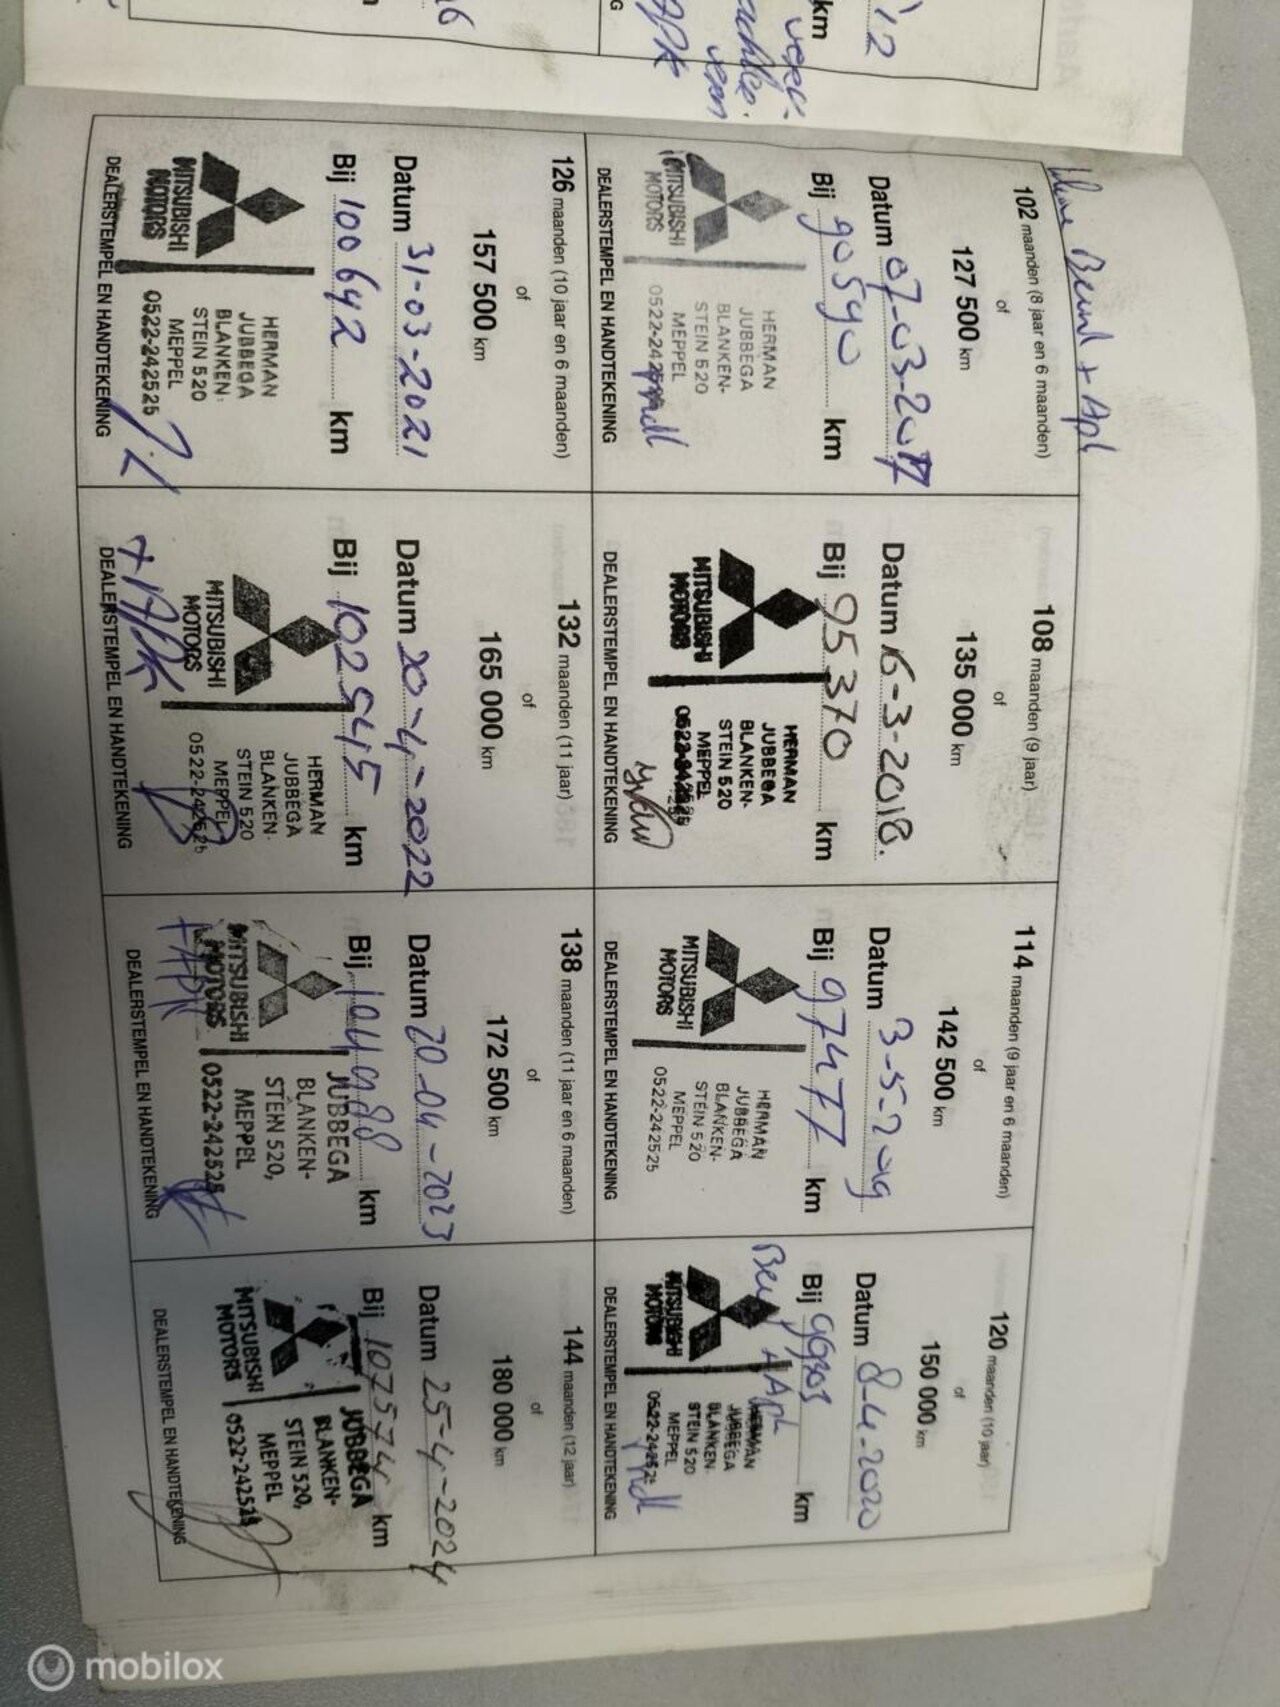 102 maanden (8 jaar en 6 maanden)
of
127 500 km
Datum 07-03-2017
Bij 90590 km
MITSUBISHI
MOTORS
HERMAN
JUBBEGA
BLANKEN-
STEIN 520
MEPPEL
DEALERSTEMPEL EN HANDTEKENING
108 maanden (9 jaar)
of
135 000 km
Datum 16-3-2018.
Bij 95370 km
MITSUBISHI
MOTORS
HERMAN
JUBBEGA
BLANKEN-
STEIN 520
MEPPEL
DEALERSTEMPEL EN HANDTEKENING
114 maanden (9 jaar en 6 maanden)
of
142 500 km
Datum 3-5-2019
Bij 97477 km
MITSUBISHI
MOTORS
HERMAN
JUBBEGA
BLANKEN-
STEIN 520
MEPPEL
0522-242525
DEALERSTEMPEL EN HANDTEKENING
120 maanden (10 jaar)
of
150 000 km
Datum 8-4-2020
Bij 99303 km
MITSUBISHI
MOTORS
HERMAN
JUBBEGA
BLANKEN-
STEIN 520
MEPPEL
DEALERSTEMPEL EN HANDTEKENING
126 maanden (10 jaar en 6 maanden)
of
157 500 km
Datum 31-03-2021
Bij 100642 km
MITSUBISHI
MOTORS
HERMAN
JUBBEGA
BLANKEN-
STEIN 520
MEPPEL
0522-242525
DEALERSTEMPEL EN HANDTEKENING
132 maanden (11 jaar)
of
165 000 km
Datum 20-4-2022
Bij 102545 km
MITSUBISHI
MOTORS
HERMAN
JUBBEGA
BLANKEN-
STEIN 520
MEPPEL
0522-242525
+ APK
DEALERSTEMPEL EN HANDTEKENING
138 maanden (11 jaar en 6 maanden)
of
172 500 km
Datum 20-04-2023
Bij 104988 km
MITSUBISHI
MOTORS
JUBBEGA
BLANKEN-
STEIN 520,
MEPPEL
0522-242525
+ APK
DEALERSTEMPEL EN HANDTEKENING
144 maanden (12 jaar)
of
180 000 km
Datum 25-4-2024
Bij 107574 km
MITSUBISHI
MOTORS
JUBBEGA
BLANKEN-
STEIN 520,
MEPPEL
0522-242525
DEALERSTEMPEL EN HANDTEKENING
mobilox